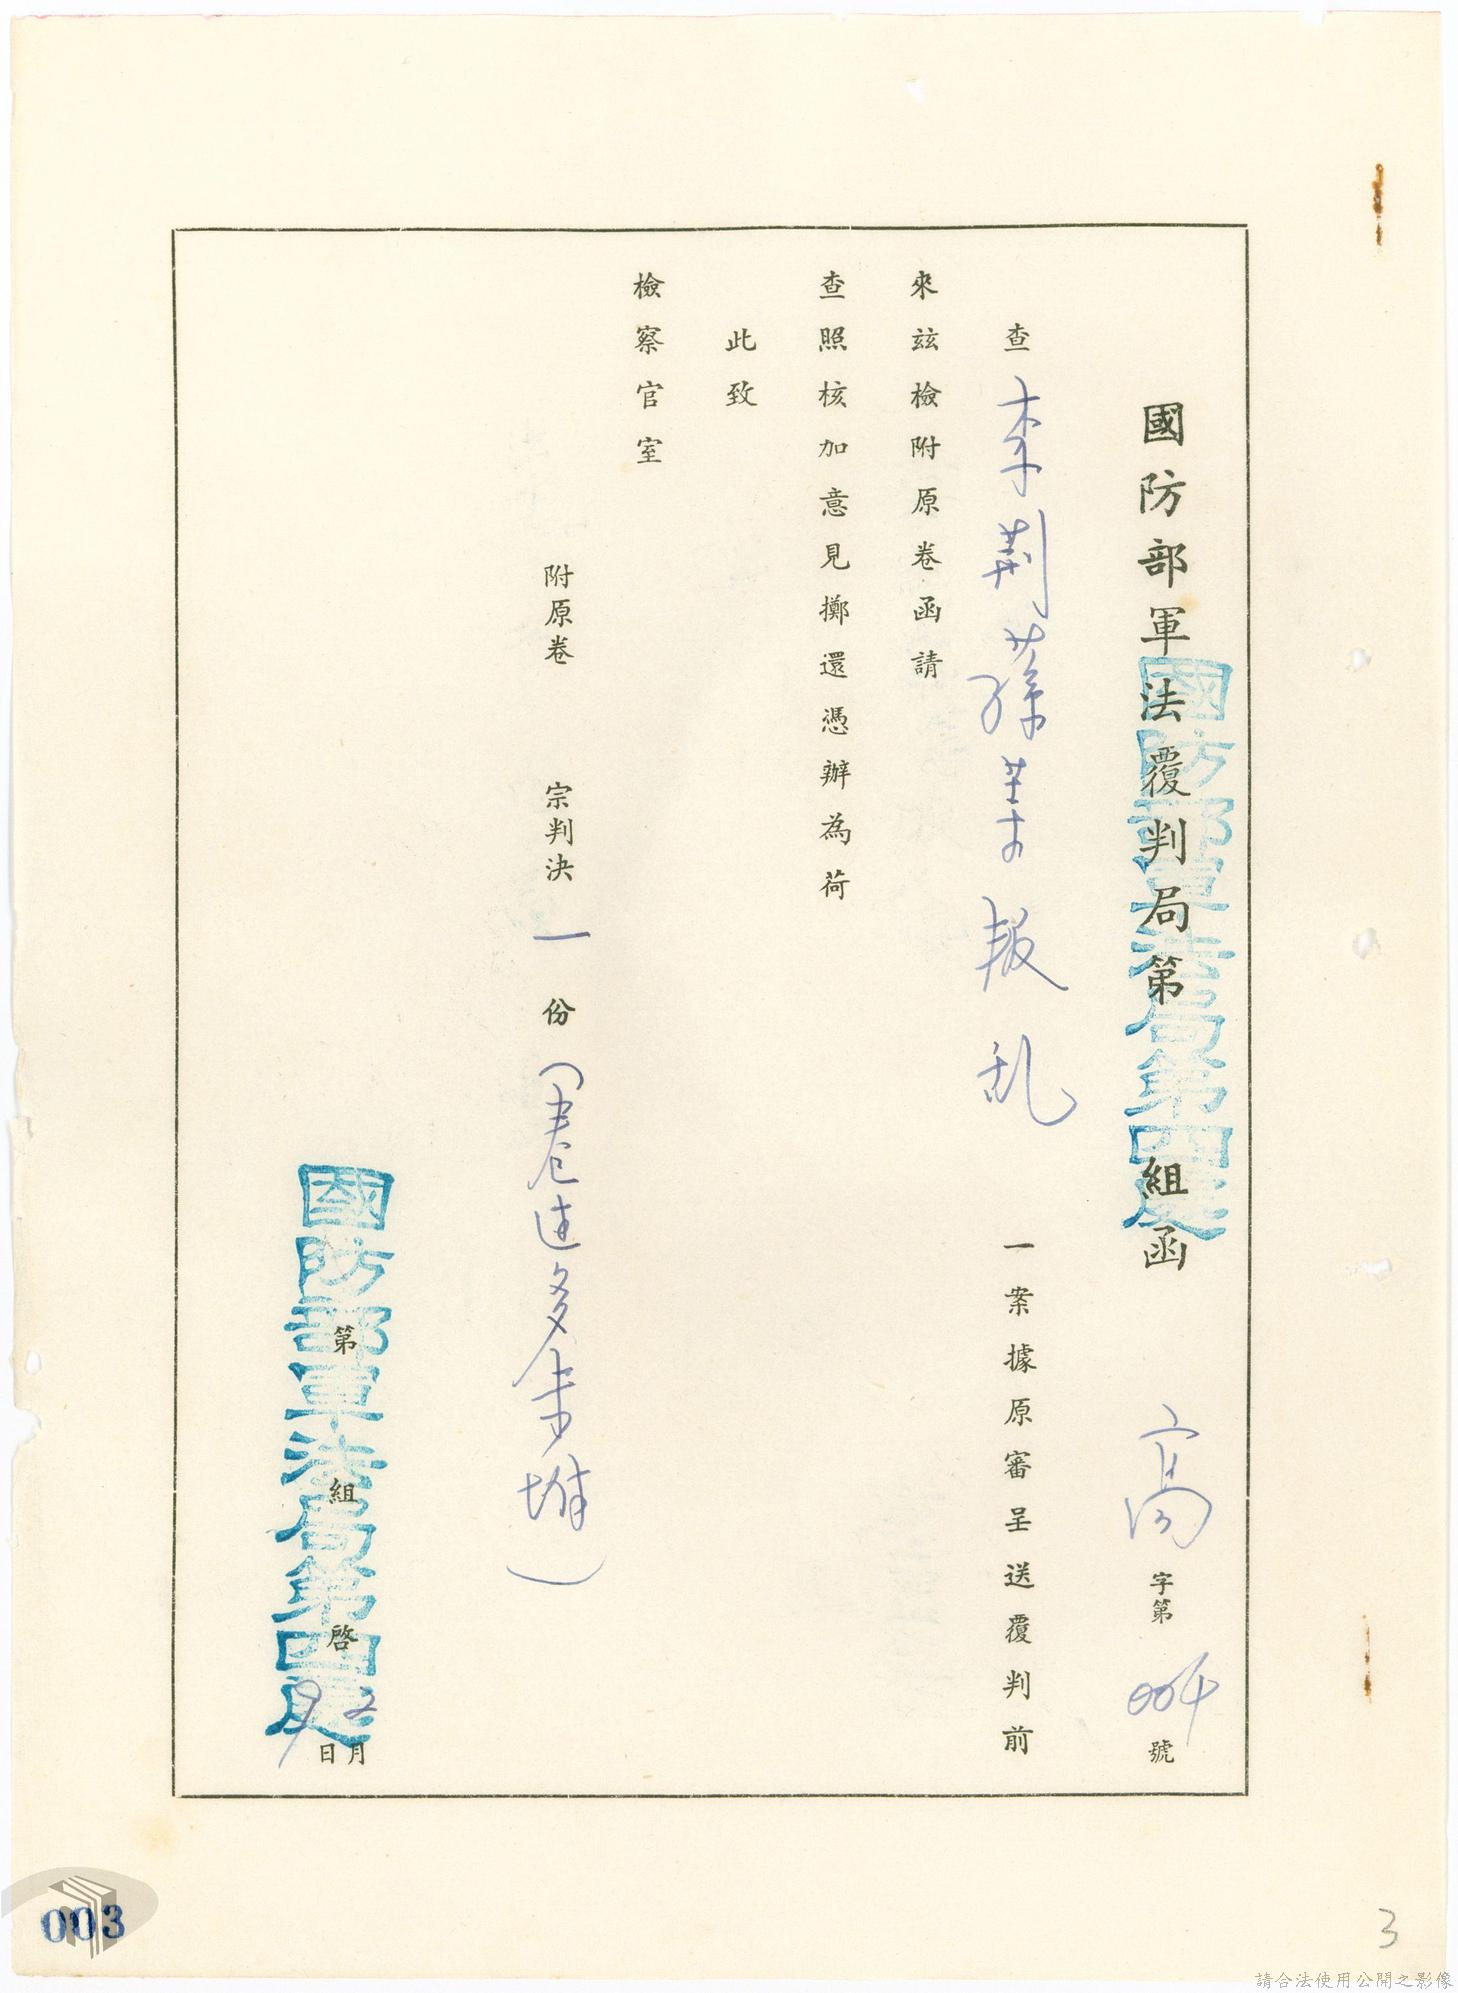 國防部軍法覆判局第 組函 高字第004號
國防部軍法局第四處
查李荆蓀等叛乱一案據原審呈送覆判前
來茲檢附原卷函請
查照核加意見擲還憑辦為荷
此致
檢察官室
附原卷 宗判決一份(卷送多未堆)
第 組 啓 2月9日
國防部軍法局第四處
003
3
請合法使用公開之影像